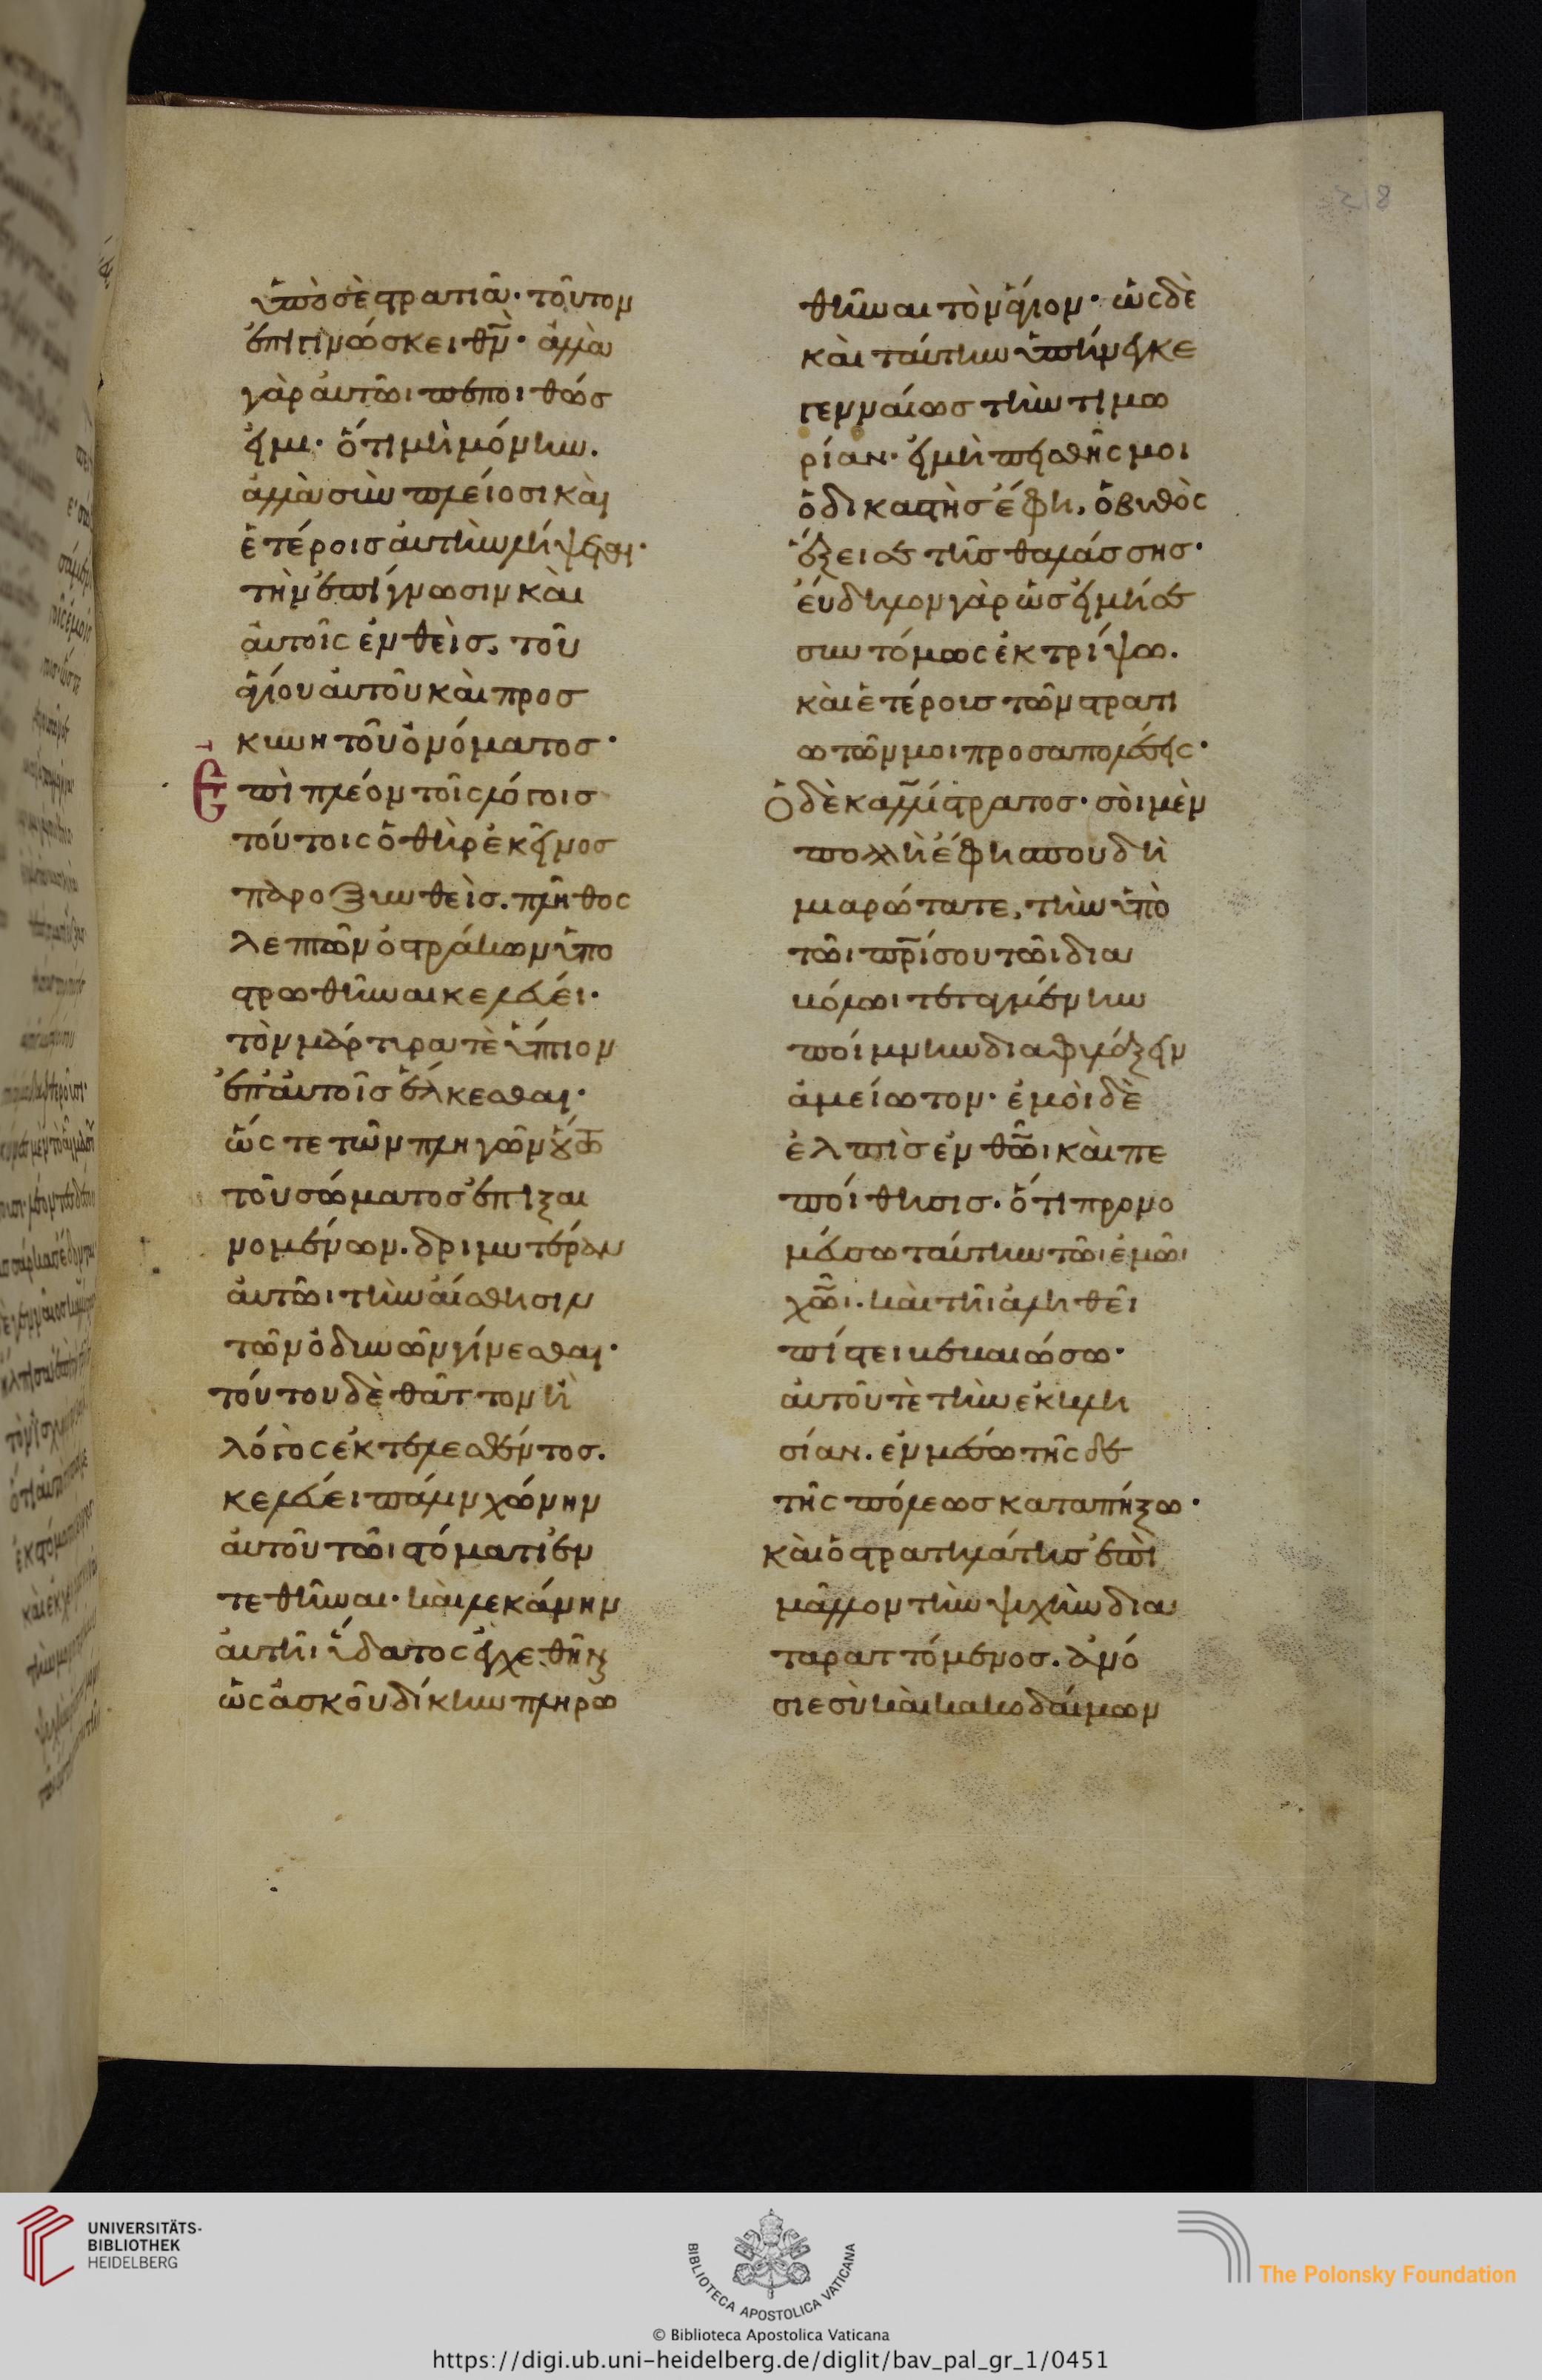 ὑπὸ σὲ στρατιὰν· τοῦτον
ἐπιγινώσκει θν̄· ἀλλὰ
γὰρ αὐτῶι πέποιθώς
εἰμι· ὅτι μὴ μόνην.
ἀλλὰ σὺν πλείοσι καὶ
ἑτέροις αὐτὴν λήψεται·
τὴν ἐπίγνωσιν καὶ
αὐτοῖς ἐνθεὶς. τοῦ
ἁγίου αὐτοῦ καὶ προσ
κυνητοῦ ὀνόματος·
Ἐπὶ πλέον τοῖς λόγοις
τούτοις ὁ θὴρ ἐκεῖνος
παροξυνθεὶς. πλῆθος
λεπτῶν ὀστράκων ὑπο
στρωθῆναι κελεύει·
τὸν μάρτυρα τὲ ὕπτιον
ἐπ' αὐτοῖς ἕλκεσθαι·
ὥς τε τῶν πληγῶν
τοῦ σώματος ἐπιξαι
νομένων. δριμυτέραν
αὐτῶι τὴν αἴσθησιν
τῶν ὀδυνῶν γίνεσθαι·
τούτου δὲ θᾶττον ἢ
λόγος ἐκτελεσθέντος.
κελεύει πάλιν χώνην
αὐτοῦ τῶι στόματι ἐν
τεθῆναι· καὶ λεκάνην
αὐτῆι ὕδατος ἐγχεθῆναι
ὡς ἀσκοῦ δίκην πληρω
θῆναι τὸν ἅγιον· ὡς δὲ
καὶ ταύτην ὑπήνεγκε
γενναίως τὴν τιμω
ρίαν· εἰ μὴ πεισθῆς μοι
ὁ δικαστὴς ἔφη, ὁ βυθὸς
ἕξει σε τῆς θαλάσσης·
εὔδηλον γὰρ ὡς εἰ μή σε
συντόμως ἐκτρίψω.
καὶ ἑτέροις τῶν στρατι
ωτῶν μοι προσαπολέσεις·
Ὁ δὲ καλλίστρατος· σοὶ μὲν
πολλὴ ἔφη σπουδὴ
μιαρώτατε, τὴν ὑπὸ
τῶι πρ̄ί σου τῶι δια
βόλωι τεταγμένην
ποίμνην διαφυλάξειν
ἀμείωτον· ἐμοὶ δὲ
ἐλπὶς ἐν θῶ̄ι καὶ πε
ποίθησις. ὅτι προνο
μεύσω ταύτην τῶι ἐμῶι
χῶ̄ι. καὶ τῆι ἀληθεῖ
πίστει βεβαιώσω·
αὐτοῦ τὲ τὴν ἐκκλη
σίαν. ἐν μέσω τῆς δε
τῆς πόλεως καταπήξω·
καὶ ὁ στρατηλάτης ἐπὶ
μᾶλλον τὴν ψυχὴν δια
ταραττόμενος. ἀνό
σιε σὺ καὶ κακοδαίμων
218
UNIVERSITÄTS-
BIBLIOTHEK
HEIDELBERG
BIBLIOTECA APOSTOLICA VATICANA
The Polonsky Foundation
© Biblioteca Apostolica Vaticana
https://digi.ub.uni-heidelberg.de/diglit/bav_pal_gr_1/0451